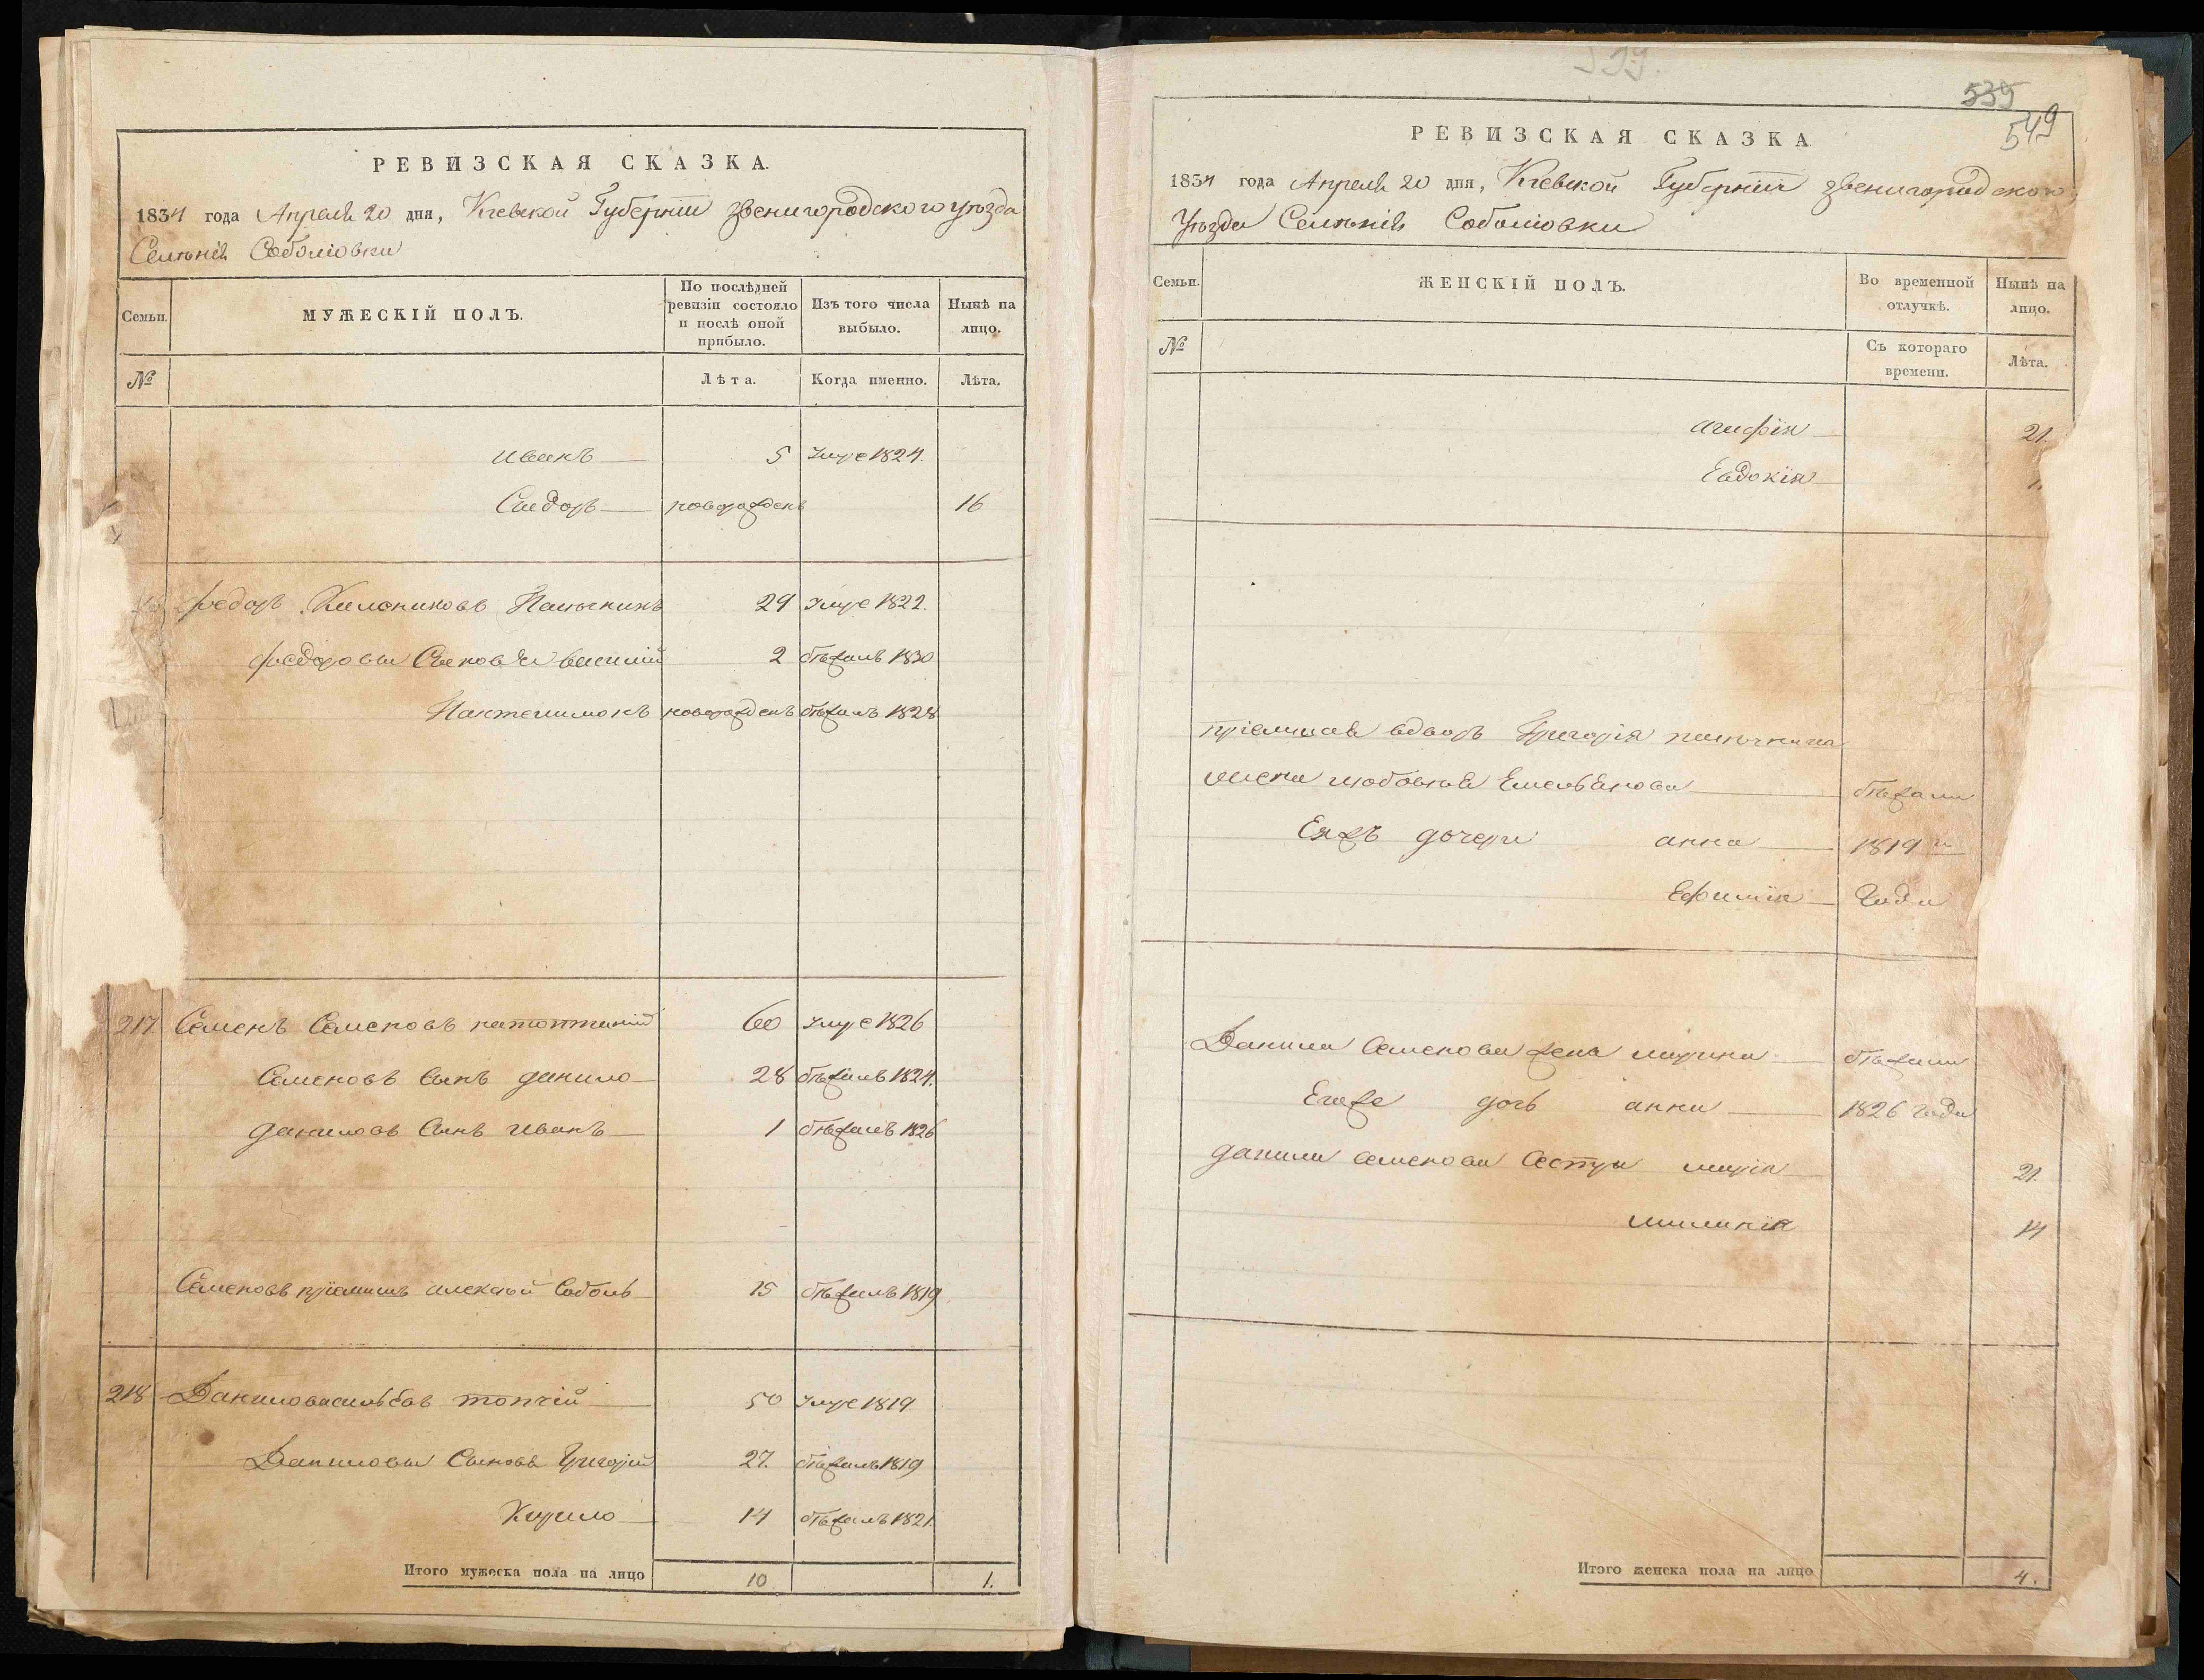 РЕВИЗСКАЯ СКАЗКА.
1834 года Апреля 20 дня, Кіевской Губерніи Звенигородского уѣзда
Селѣнія Соболіовки
Семьи.
МУЖЕСКІЙ ПОЛЪ.
По послѣдней ревизіи состояло и послѣ оной прибыло.
Изъ того числа выбыло.
Нынѣ на лицо.
№
Лѣта.
Когда именно.
Лѣта.
иванъ 5 умре 1824.
Сидоръ новорожденъ 16
федоръ 29 умре 1822.
федоровы Сыновья василій 2 бѣжалъ 1830
Пантелимонъ новорожденъ бѣжалъ 1828
217 Семенъ Семеновъ 60 умре 1826
Семеновъ Сынъ данило 28 бѣжалъ 1824.
даниловъ Сынъ иванъ 1 бѣжалъ 1826
Семеновъ пріемышъ алексѣй Соболь 15 бѣжалъ 1819
218 Данило васильевъ топчій 50 умре 1819
Даниловы Сыновья Григорій 27. бѣжалъ 1819
Кирило 14 бѣжалъ 1821.
Итого мужеска пола на лицо 10 1.
539
549
РЕВИЗСКАЯ СКАЗКА
1834 года Апреля 20 дня, Кіевской Губерніи Звенигородского
Уѣзда Селѣнія Соболіовки
Семьи.
ЖЕНСКІЙ ПОЛЪ.
Во временной отлучкѣ.
Нынѣ на лицо.
№
Съ котораго времени.
Лѣта.
агафія 21.
Евдокія
Григорія
Емельянова бѣжали
Еяжъ дочери анна 1819 го
Ефимія Года
Данила Семенова жена марина бѣжали
Егоже дочь анна 1826 года
данила семенова Сестры марія 21.
миланія 14
Итого женска пола на лицо 4.